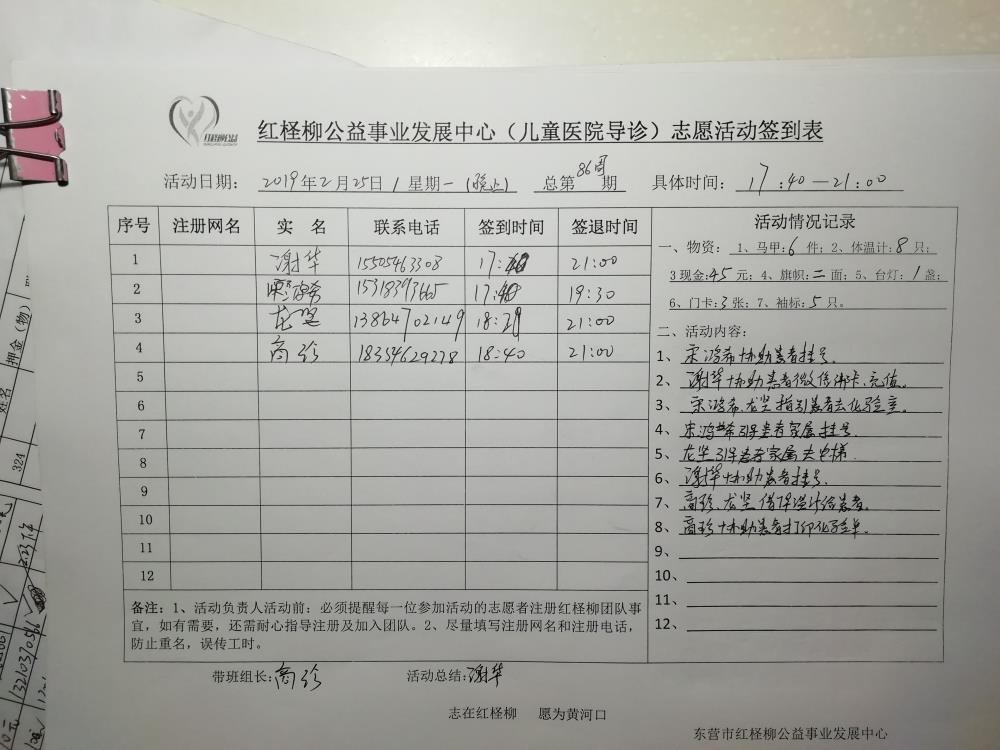 红柽柳公益事业发展中心（儿童医院导诊）志愿活动签到表
活动日期： 2019年2月25日/星期一（晚上） 总第86周期 具体时间：17:40—21:00
序号 注册网名 实 名 联系电话 签到时间 签退时间 活动情况记录
一、物资： 1、马甲：6 件；2、体温计：8 只；
3现金：45 元；4、旗帜：二 面；5、台灯：1 盏；
6、门卡：3 张；7、袖标：5 只。
1 谢华 15505463308 17:40 21:00
2 15318393665 17:40 19:30
3 龙坚 13864702149 18:21 21:00
4 高珍 18354629278 18:40 21:00
5
6
7
8
9
10
11
12
二、活动内容：
1、宋鸿希协助患者挂号.
2、谢华协助患者微信绑卡、充值。
3、宋鸿希、龙坚指引患者去化验室。
4、宋鸿希引导患者家属挂号.
5、龙坚引导患者家属去电梯.
6、谢华协助患者挂号.
7、高珍、龙坚借体温计给患者.
8、高珍协助患者打印化验单.
9、
10、
11、
12、
备注：1、活动负责人活动前：必须提醒每一位参加活动的志愿者注册红柽柳团队事
宜，如有需要，还需耐心指导注册及加入团队。2、尽量填写注册网名和注册电话，
防止重名，误传工时。
带班组长：高珍 活动总结：谢华
志在红柽柳 愿为黄河口
东营市红柽柳公益事业发展中心
押金（物）
姓名
324